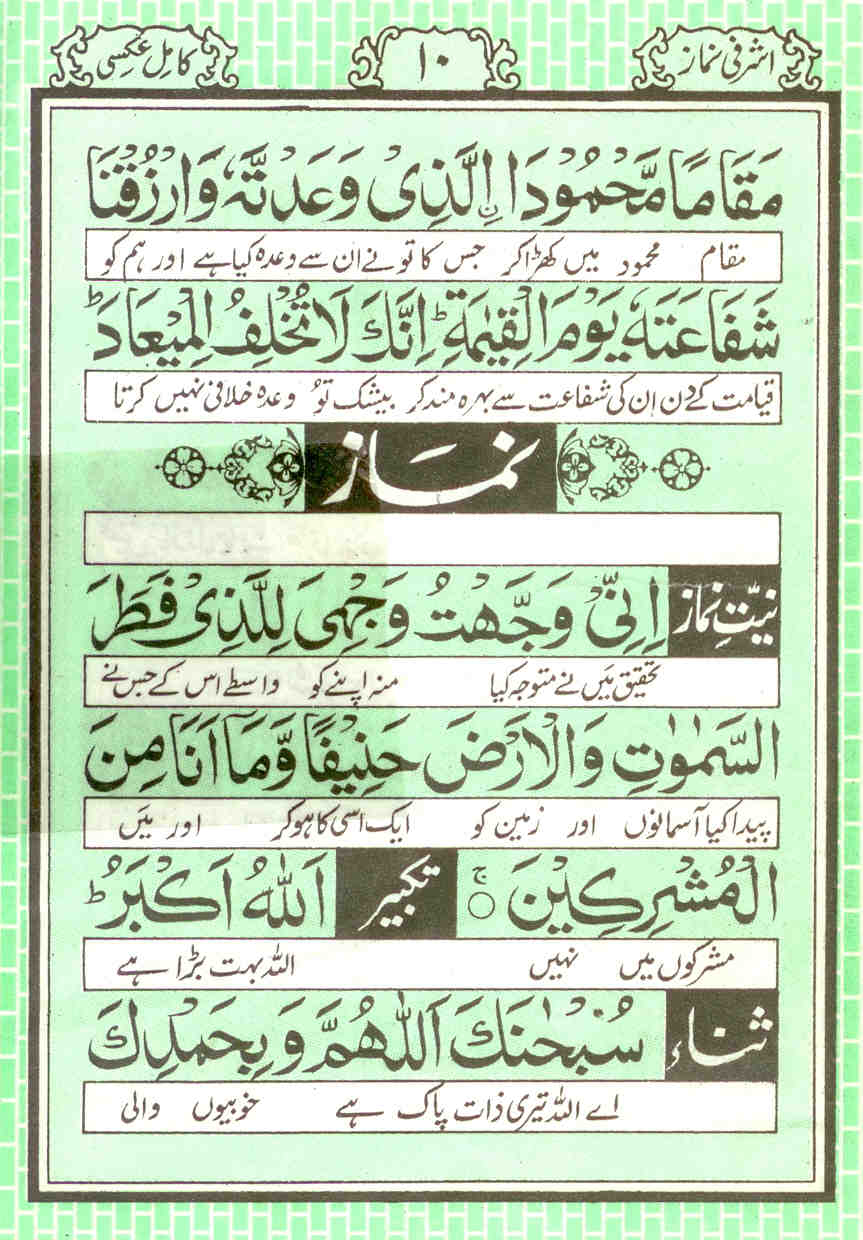 اشرفی نماز ۱۰ کامل عکسی
مَقَامًا مَّحْمُوْدَا ۨالَّذِیْ وَعَدْتَّهٗ وَارْزُقْنَا
مقام محمود میں کھڑا کر جس کا تو نے ان سے وعدہ کیا ہے اور ہم کو
شَفَاعَتَهٗ يَوْمَ الْقِيٰمَةِ ؕ اِنَّكَ لَا تُخْلِفُ الْمِيْعَادَ ؕ
قیامت کے دن اِن کی شفاعت سے بہرہ مند کر بیشک توُ وعدہ خلافی نہیں کرتا
نماز
نیّتِ نماز اِنِّیْ وَجَّهْتُ وَجْهِیَ لِلَّذِیْ فَطَرَ
تحقیق میَں نے متوجہ کیا منہ اپنے کو واسطے اس کے جس نے
السَّمٰوٰتِ وَالْاَرْضَ حَنِيْفًا وَّمَا اَنَا مِنَ
پیدا کیا آسمانوں اور زمین کو ایک اسی کا ہو کر اور میَں
الْمُشْرِكِيْنَ ۚ○ تکبیر اَللّٰهُ اَكْبَرُ ؕ
مشرکوں میں نہیں اللہ بہت بڑا ہے
ثناء سُبْحٰنَكَ اَللّٰهُمَّ وَبِحَمْدِكَ
اے اللہ تیری ذات پاک ہے خوبیوں والی